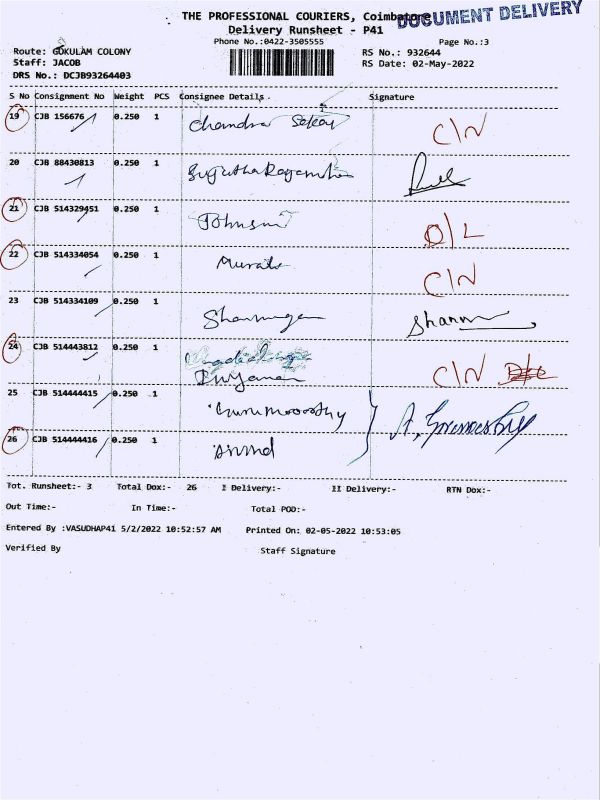 THE PROFESSIONAL COURIERS, Coimbatore
DOCUMENT DELIVERY
Delivery Runsheet - P41
Phone No.:0422-3505555
Page No.:3
Route: GOKULAM COLONY
RS No.: 932644
Staff: JACOB
RS Date: 02-May-2022
DRS No.: DCJB93264403
S No Consignment No Weight PCS Consignee Details. Signature
19 CJB 156676 0.250 1 Chandra Sekar C/N
20 CJB 88430813 0.250 1
21 CJB 514329451 0.250 1 Johnson D/L
22 CJB 514334054 0.250 1 Murali C/N
23 CJB 514334109 0.250 1 Shanmugam Shanm
24 CJB 514443812 0.250 1 C/N
25 CJB 514444415 0.250 1 Gurumoorthy
26 CJB 514444416 0.250 1 Arvind
Tot. Runsheet:- 3 Total Dox:- 26 I Delivery:- II Delivery:- RTN Dox:-
Out Time:- In Time:- Total POD:-
Entered By :VASUDHAP41 5/2/2022 10:52:57 AM Printed On: 02-05-2022 10:53:05
Verified By Staff Signature